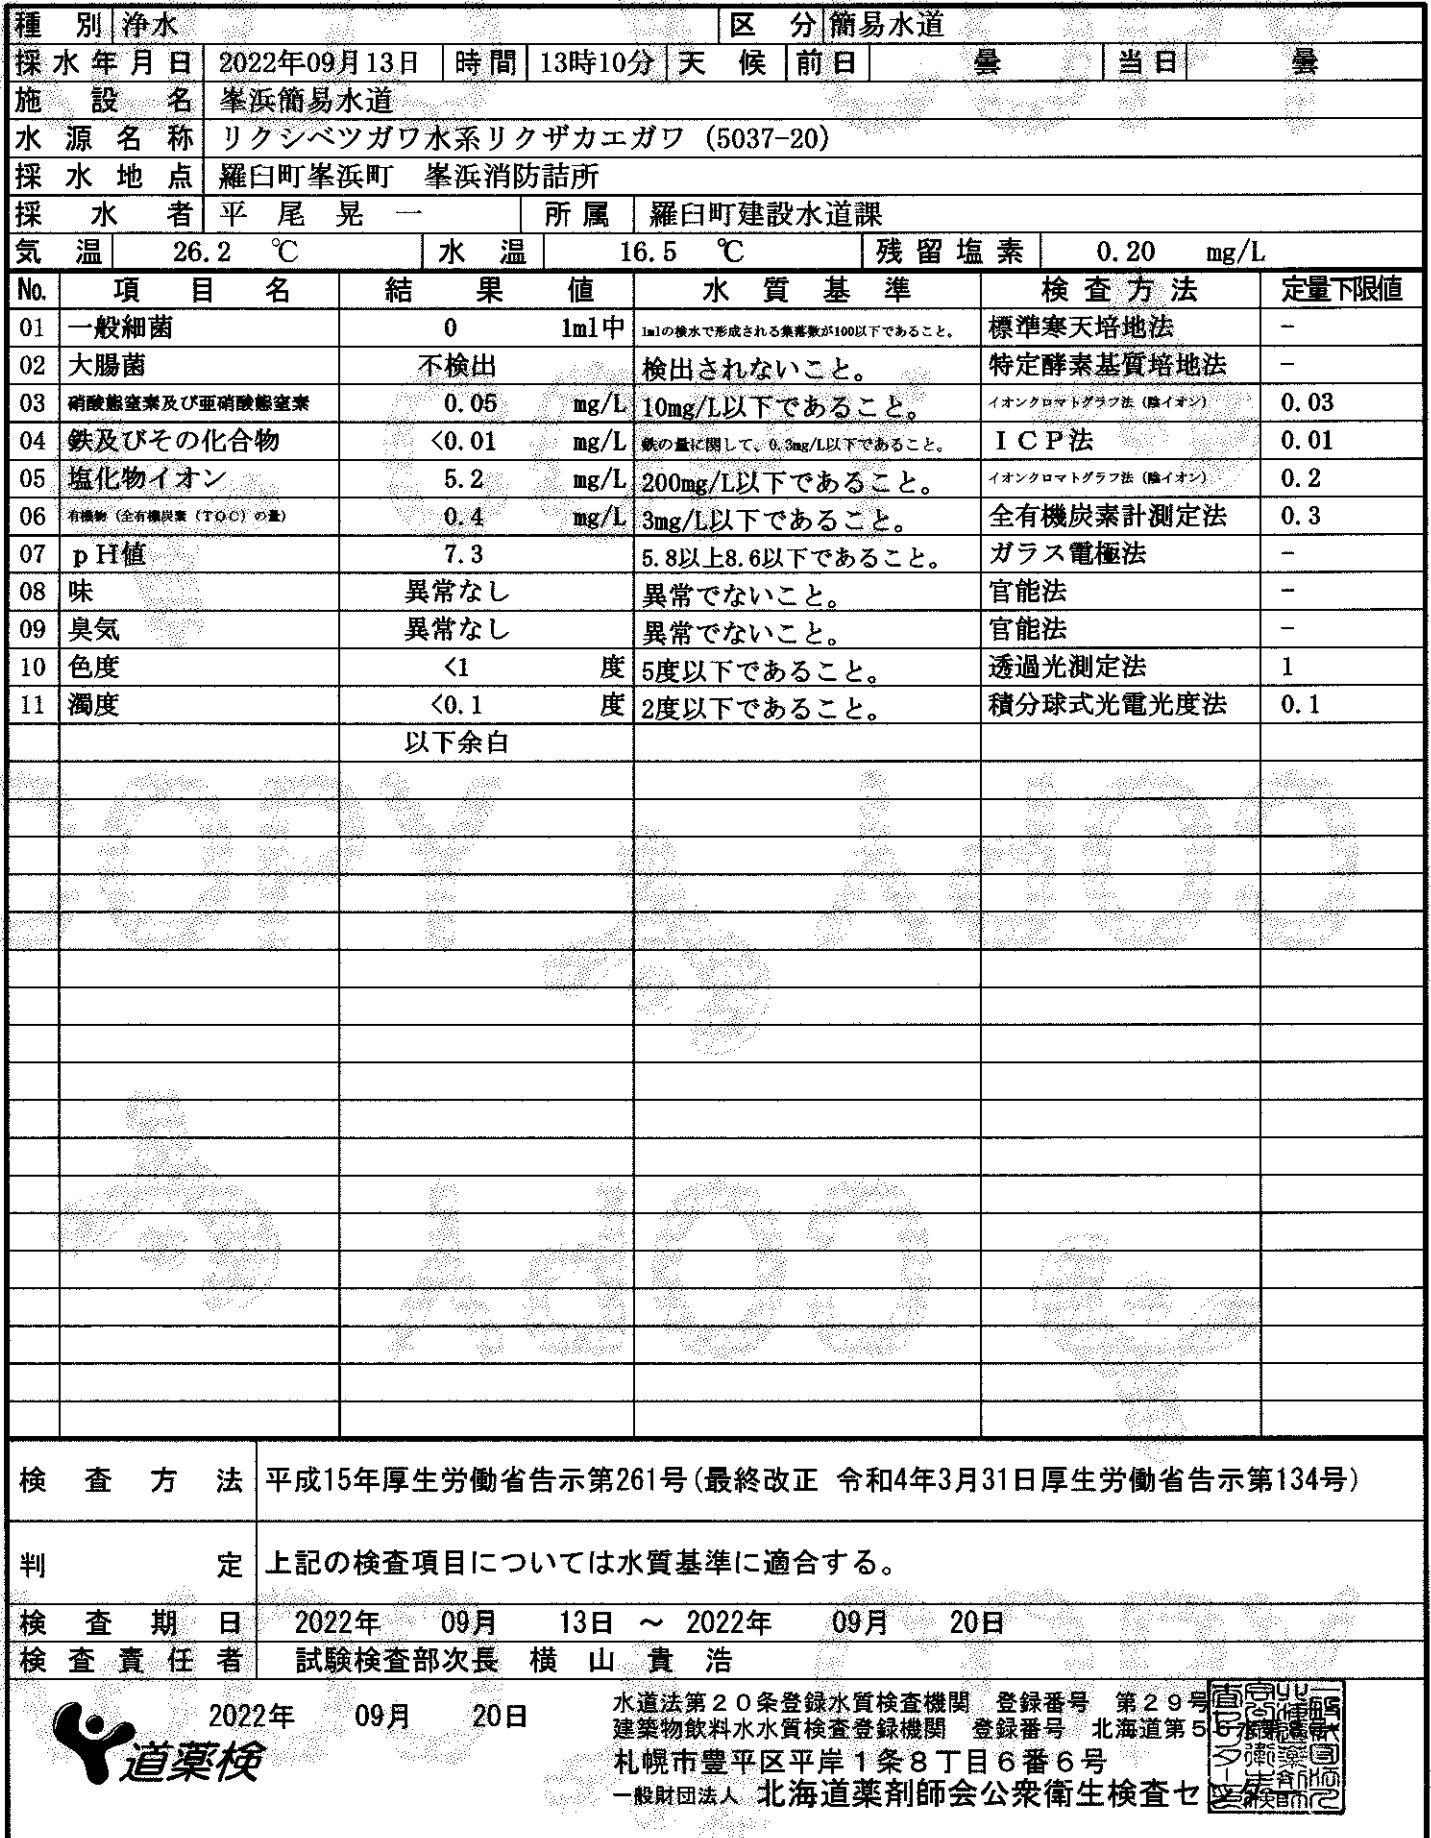 種別 浄水 区分 簡易水道
採水年月日 2022年09月13日 時間 13時10分 天候 前日 曇 当日 曇
施設名 峯浜簡易水道
水源名称 リクシベツガワ水系リクザカエガワ (5037-20)
採水地点 羅臼町峯浜町 峯浜消防詰所
採水者 平尾晃一 所属 羅臼町建設水道課
気温 26.2 ℃ 水温 16.5 ℃ 残留塩素 0.20 mg/L
No. 項目名 結果値 水質基準 検査方法 定量下限値
01 一般細菌 0 1ml中 1mlの検水で形成される集落数が100以下であること。 標準寒天培地法 −
02 大腸菌 不検出 検出されないこと。 特定酵素基質培地法 −
03 硝酸態窒素及び亜硝酸態窒素 0.05 mg/L 10mg/L以下であること。 イオンクロマトグラフ法（陰イオン） 0.03
04 鉄及びその化合物 <0.01 mg/L 鉄の量に関して、0.3mg/L以下であること。 ＩＣＰ法 0.01
05 塩化物イオン 5.2 mg/L 200mg/L以下であること。 イオンクロマトグラフ法（陰イオン） 0.2
06 有機物（全有機炭素（TOC）の量） 0.4 mg/L 3mg/L以下であること。 全有機炭素計測定法 0.3
07 ｐH値 7.3 5.8以上8.6以下であること。 ガラス電極法 −
08 味 異常なし 異常でないこと。 官能法 −
09 臭気 異常なし 異常でないこと。 官能法 −
10 色度 <1 度 5度以下であること。 透過光測定法 1
11 濁度 <0.1 度 2度以下であること。 積分球式光電光度法 0.1
以下余白
検査方法 平成15年厚生労働省告示第261号(最終改正 令和4年3月31日厚生労働省告示第134号)
判定 上記の検査項目については水質基準に適合する。
検査期日 2022年 09月 13日 ～ 2022年 09月 20日
検査責任者 試験検査部次長 横山貴浩
2022年 09月 20日
道薬検
水道法第２０条登録水質検査機関 登録番号 第２９号
建築物飲料水水質検査登録機関 登録番号 北海道第５
札幌市豊平区平岸１条８丁目６番６号
一般財団法人 北海道薬剤師会公衆衛生検査セ
COPY
COPY
COPY